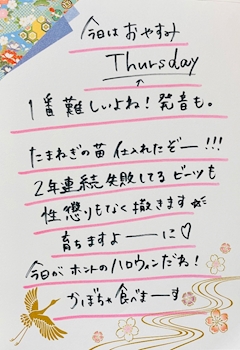 今日はおやすみ
Thursday
↑
1番難しいよね！発音も。
たまねぎの苗 仕入れたぞー!!!
2年連続失敗してるビーツも
性懲りもなく撒きます☆
育ちますよーーに♡
今日がホントのハロウィンだね！
かぼちゃ食べまーす